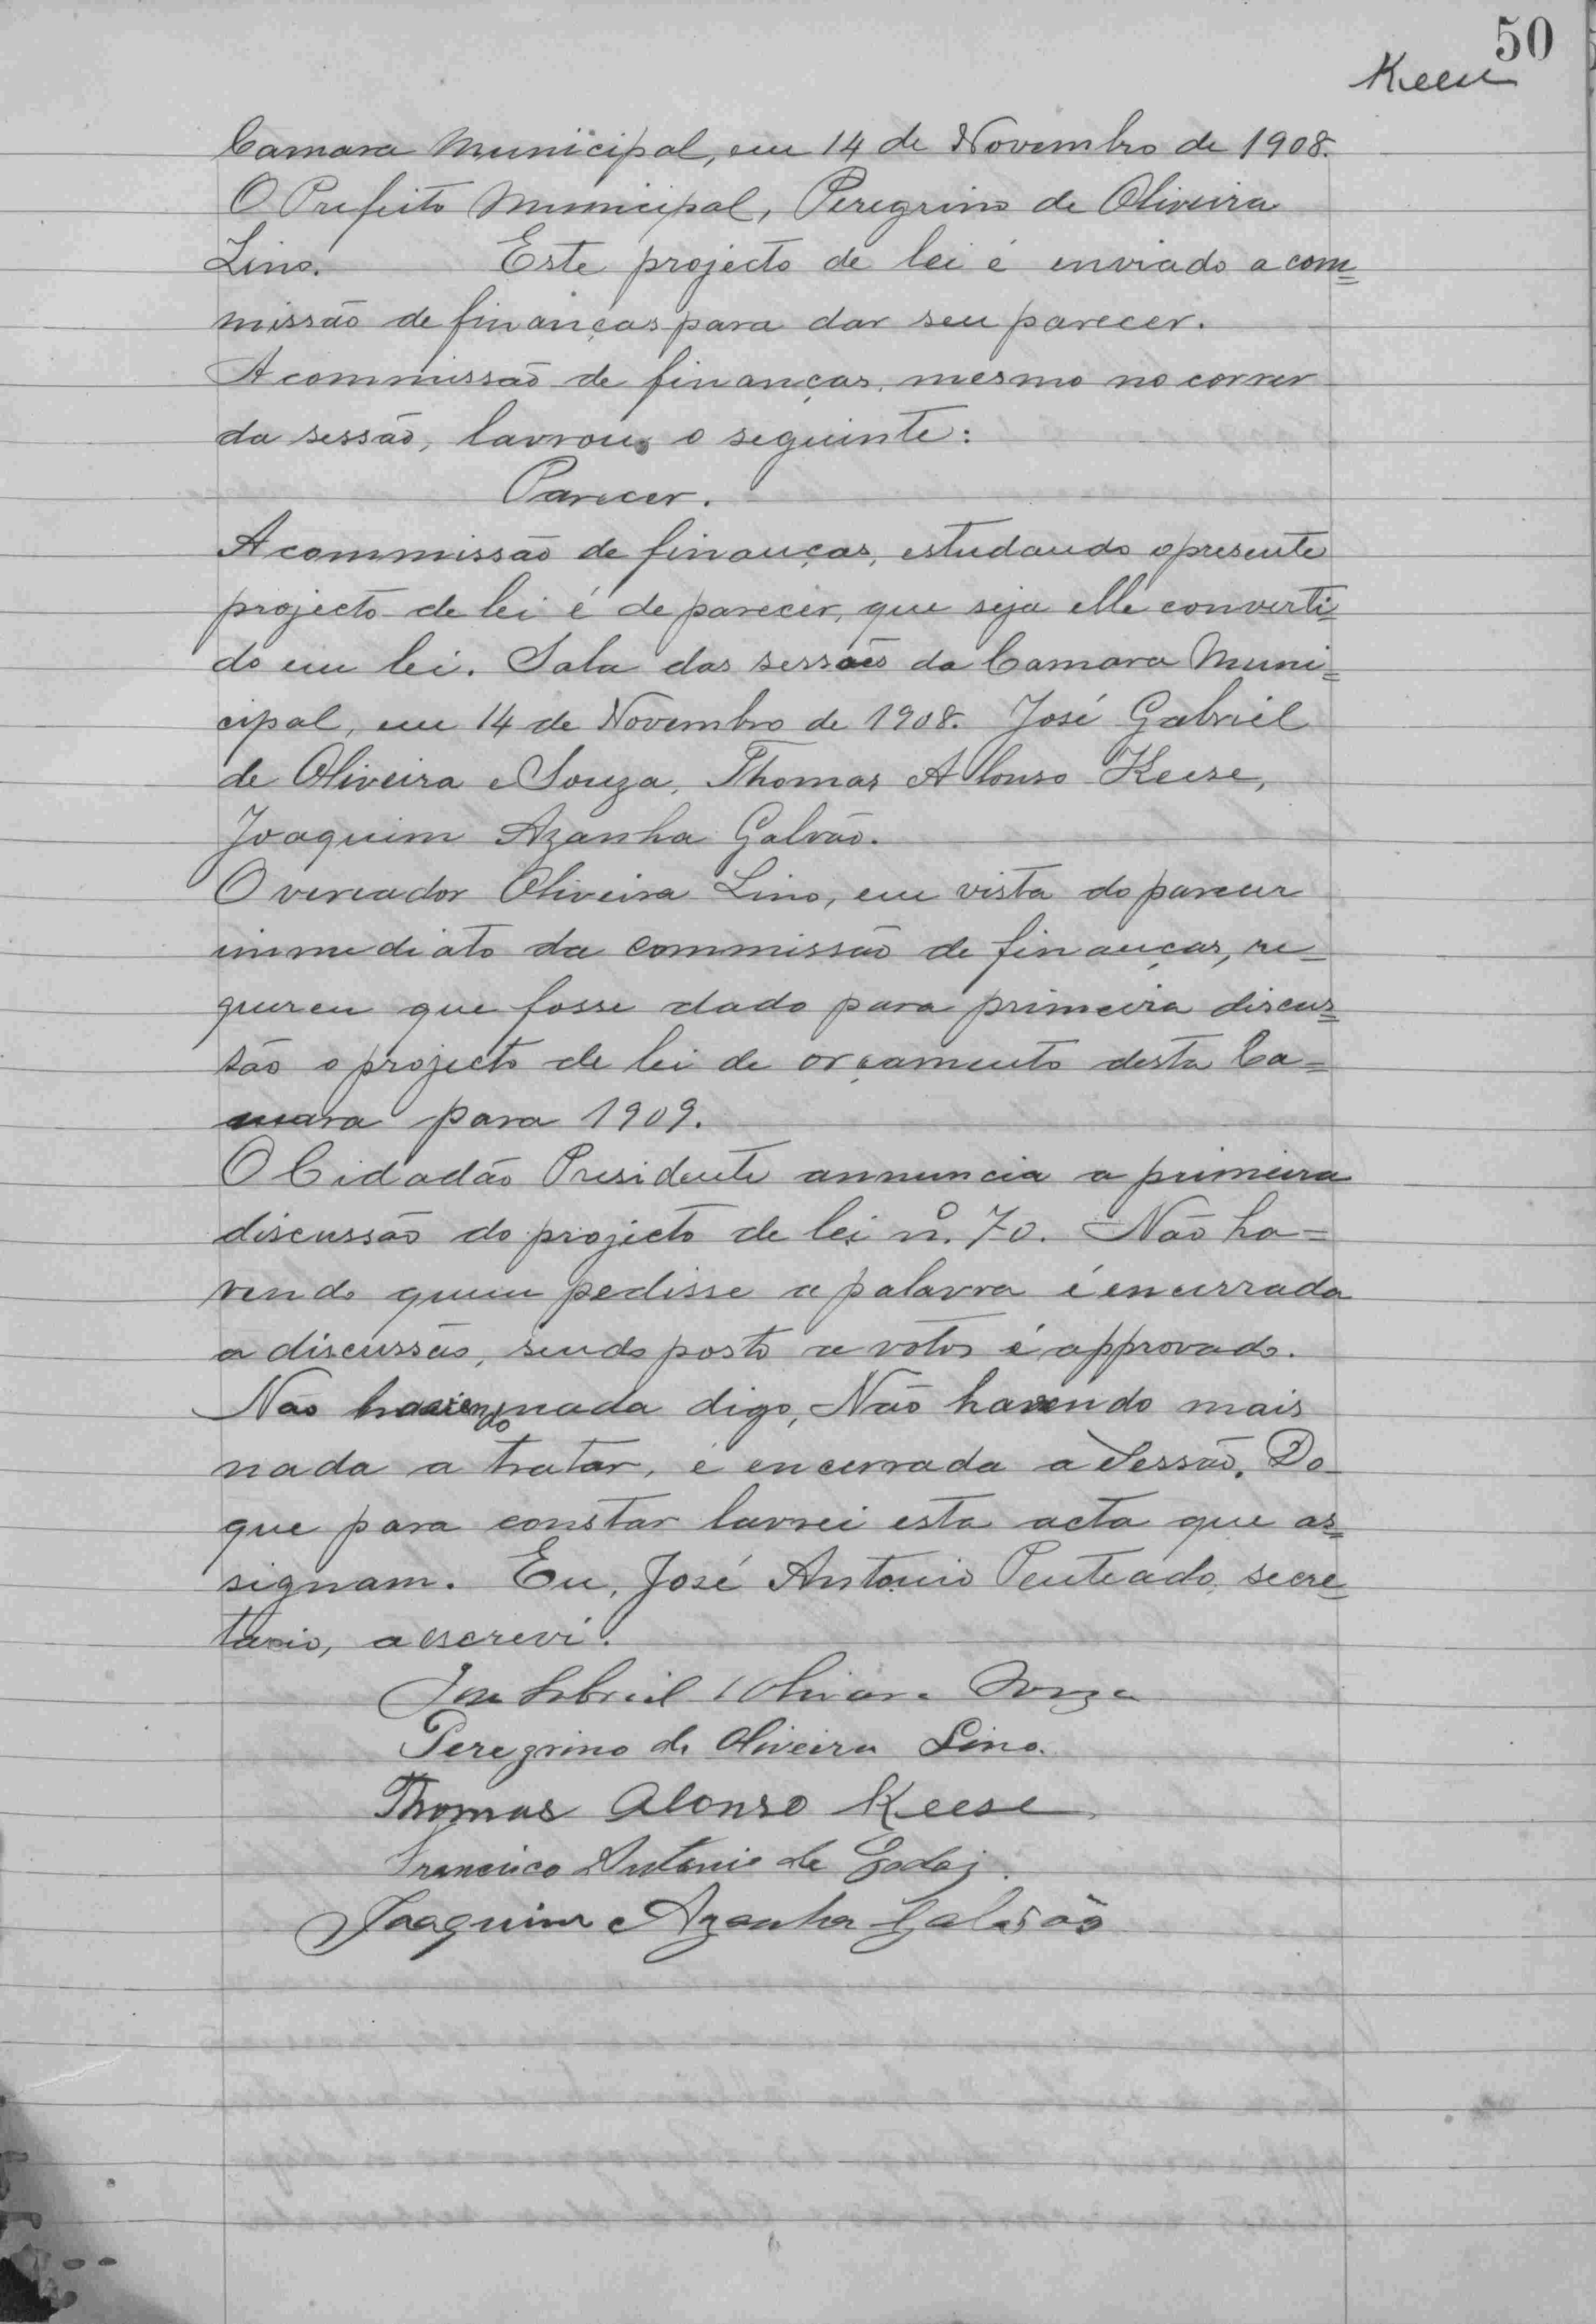 50
Keese
Camara Municipal, em 14 de Novembro de 1908.
O Prefeito Municipal, Peregrino de Oliveira
Lino. Este projecto de lei é enviado a com=
missão de finanças para dar seu parecer.
A commissão de finanças, mesmo no correr
da sessão, lavrou o seguinte:
Parecer.
A commissão de finanças, estudando o presente
projecto de lei é de parecer, que seja elle converti=
do em lei. Sala das sessões da Camara Muni=
cipal, em 14 de Novembro de 1908. José Gabriel
de Oliveira e Souza, Thomas Alonso Keese,
Joaquim Azanha Galvão.
O vereador Oliveira Lino, em vista do parecer
immediato da commissão de finanças, re=
quereu que fosse dado para primeira discus=
são o projecto de lei de orçamento desta Ca=
mara para 1909.
O Cidadão Presidente annuncia a primeira
discussão do projecto de lei nº. 70. Não ha=
vendo quem pedisse a palavra é encerrada
a discussão, sendo posto a votos é approvado.
Não havendo nada digo, Não havendo mais
nada a tratar, é encerrada a Sessão. Do
que para constar lavrei esta acta que as=
signam. Eu, José Antonio Penteado, secre=
tario, a escrevi.
José Gabriel Oliveira Souza
Peregrino de Oliveira Lino.
Thomas Alonso Keese
Francisco Antonio de Godoj.
Joaquim Azanha Galvão